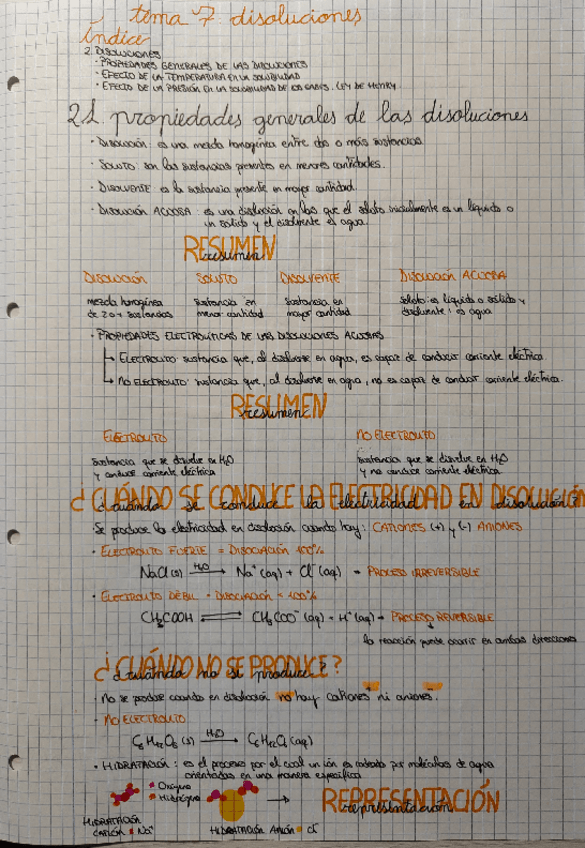 tema 7: disoluciones
Índice
2. Disoluciones
· Propiedades generales de las disoluciones
· Efecto de la temperatura en la solubilidad
· Efecto de la presión en la solubilidad de los gases. Ley de Henry
2.1 propiedades generales de las disoluciones
· Disolución: es una mezcla homogénea entre dos o más sustancias.
· Soluto: son las sustancias presentes en menores cantidades.
· Disolvente: es la sustancia presente en mayor cantidad.
· Disolución acuosa: es una disolución en las que el soluto inicialmente es un líquido o
un sólido y el disolvente es agua.
RESUMEN
resumen
Disolución Soluto Disolvente Disolución acuosa
mezcla homogénea sustancia en sustancia en soluto: es líquido o sólido y
de 2 o + sustancias menor cantidad mayor cantidad disolvente: es agua
· Propiedades electrolíticas de las disoluciones acuosas
→ Electrolito: sustancia que, al disolverse en agua, es capaz de conducir corriente eléctrica.
→ No electrolito: sustancia que, al disolverse en agua, no es capaz de conducir corriente eléctrica.
RESUMEN
resumen
Electrolito No electrolito
sustancia que se disuelve en H₂O sustancia que se disuelve en H₂O
y conduce corriente eléctrica y no conduce corriente eléctrica
¿CUÁNDO SE CONDUCE LA ELECTRICIDAD EN DISOLUCIÓN?
¿cuándo se conduce la electricidad en disolución?
· Se produce la electricidad en disolución cuando hay: CATIONES (+) y (-) ANIONES
· Electrolito fuerte = Disociación 100%
NaCl (s) —H₂O→ Na⁺ (aq) + Cl⁻ (aq) → Proceso irreversible
· Electrolito débil = Disociación < 100%
CH₃COOH ⇌ CH₃COO⁻ (aq) + H⁺ (aq) → Proceso reversible
la reacción puede ocurrir en ambas direcciones
¿CUÁNDO NO SE PRODUCE?
¿cuándo no se produce?
· No se produce cuando en disolución no hay cationes⁺ ni aniones⁻.
· No electrolito
C₆H₁₂O₆ (s) —H₂O→ C₆H₁₂O₆ (aq)
· Hidratación: es el proceso por el cual un ión es rodeado por moléculas de agua
orientadas en una manera específica
Oxígeno
Hidrógeno
→ REPRESENTACIÓN
representación
Hidratación
catión Na⁺
Hidratación Anión Cl⁻